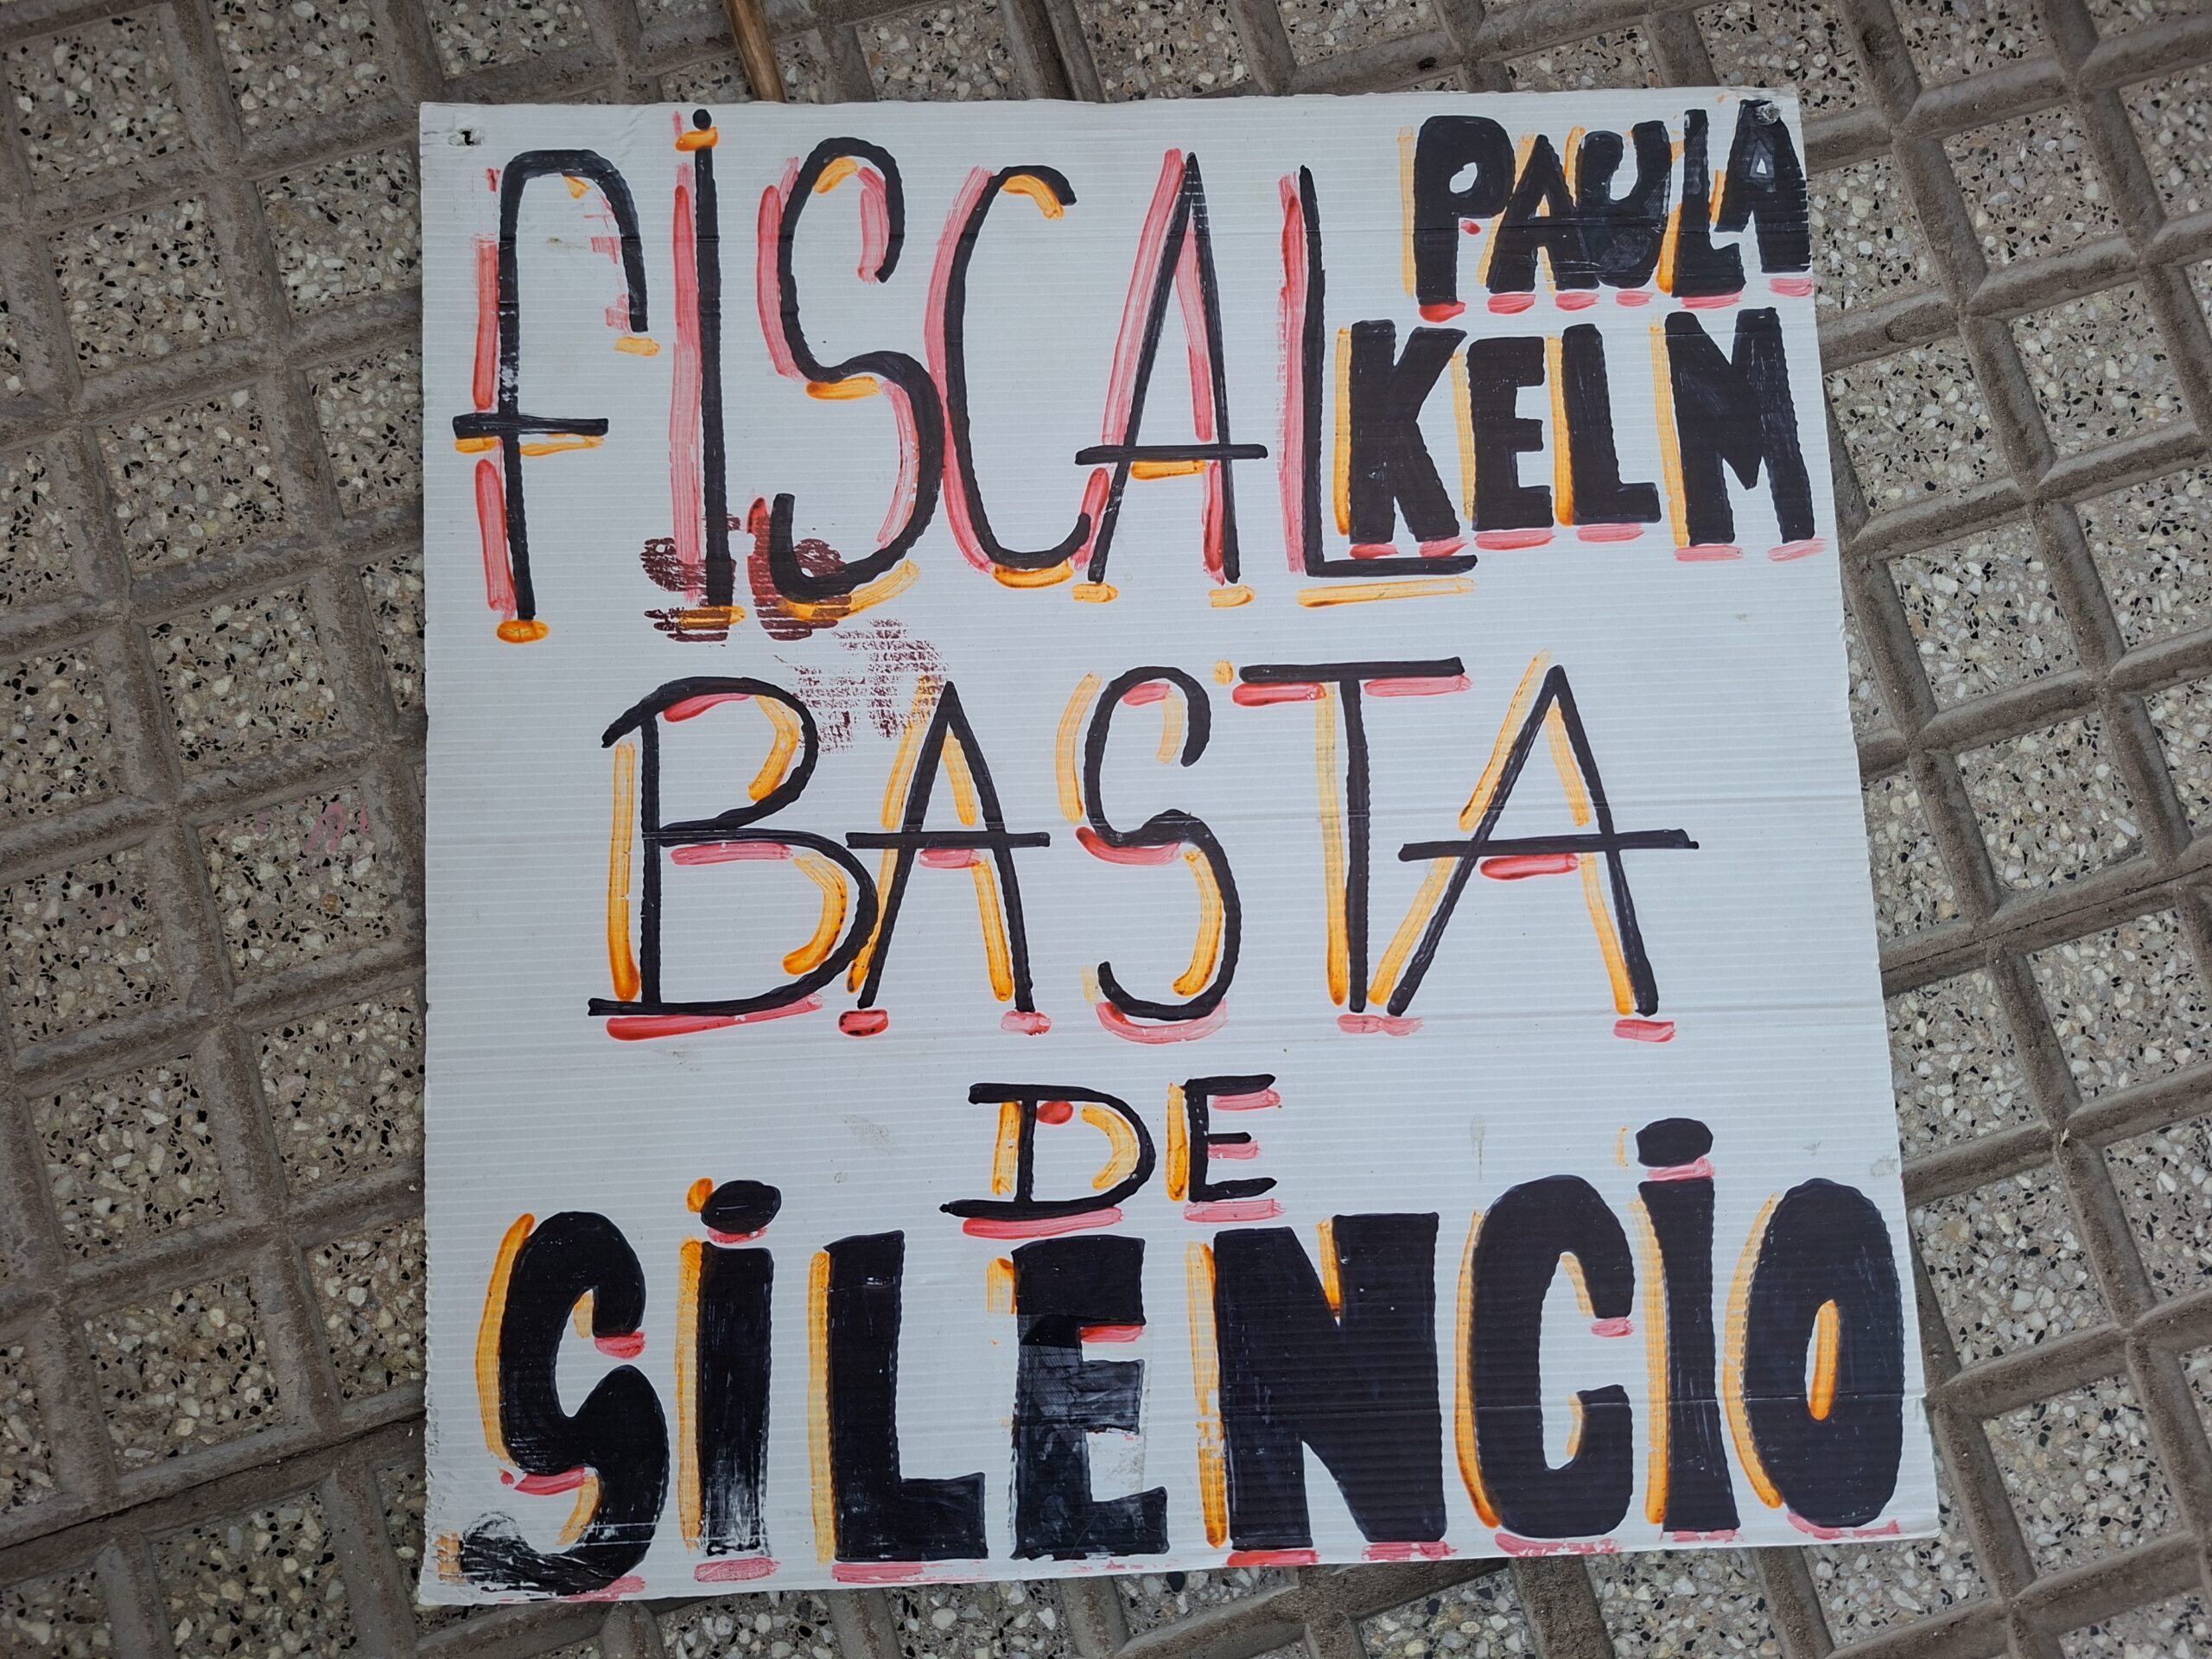 FiSCAL PAULA
KELM
BASTA
DE
SiLENCiO